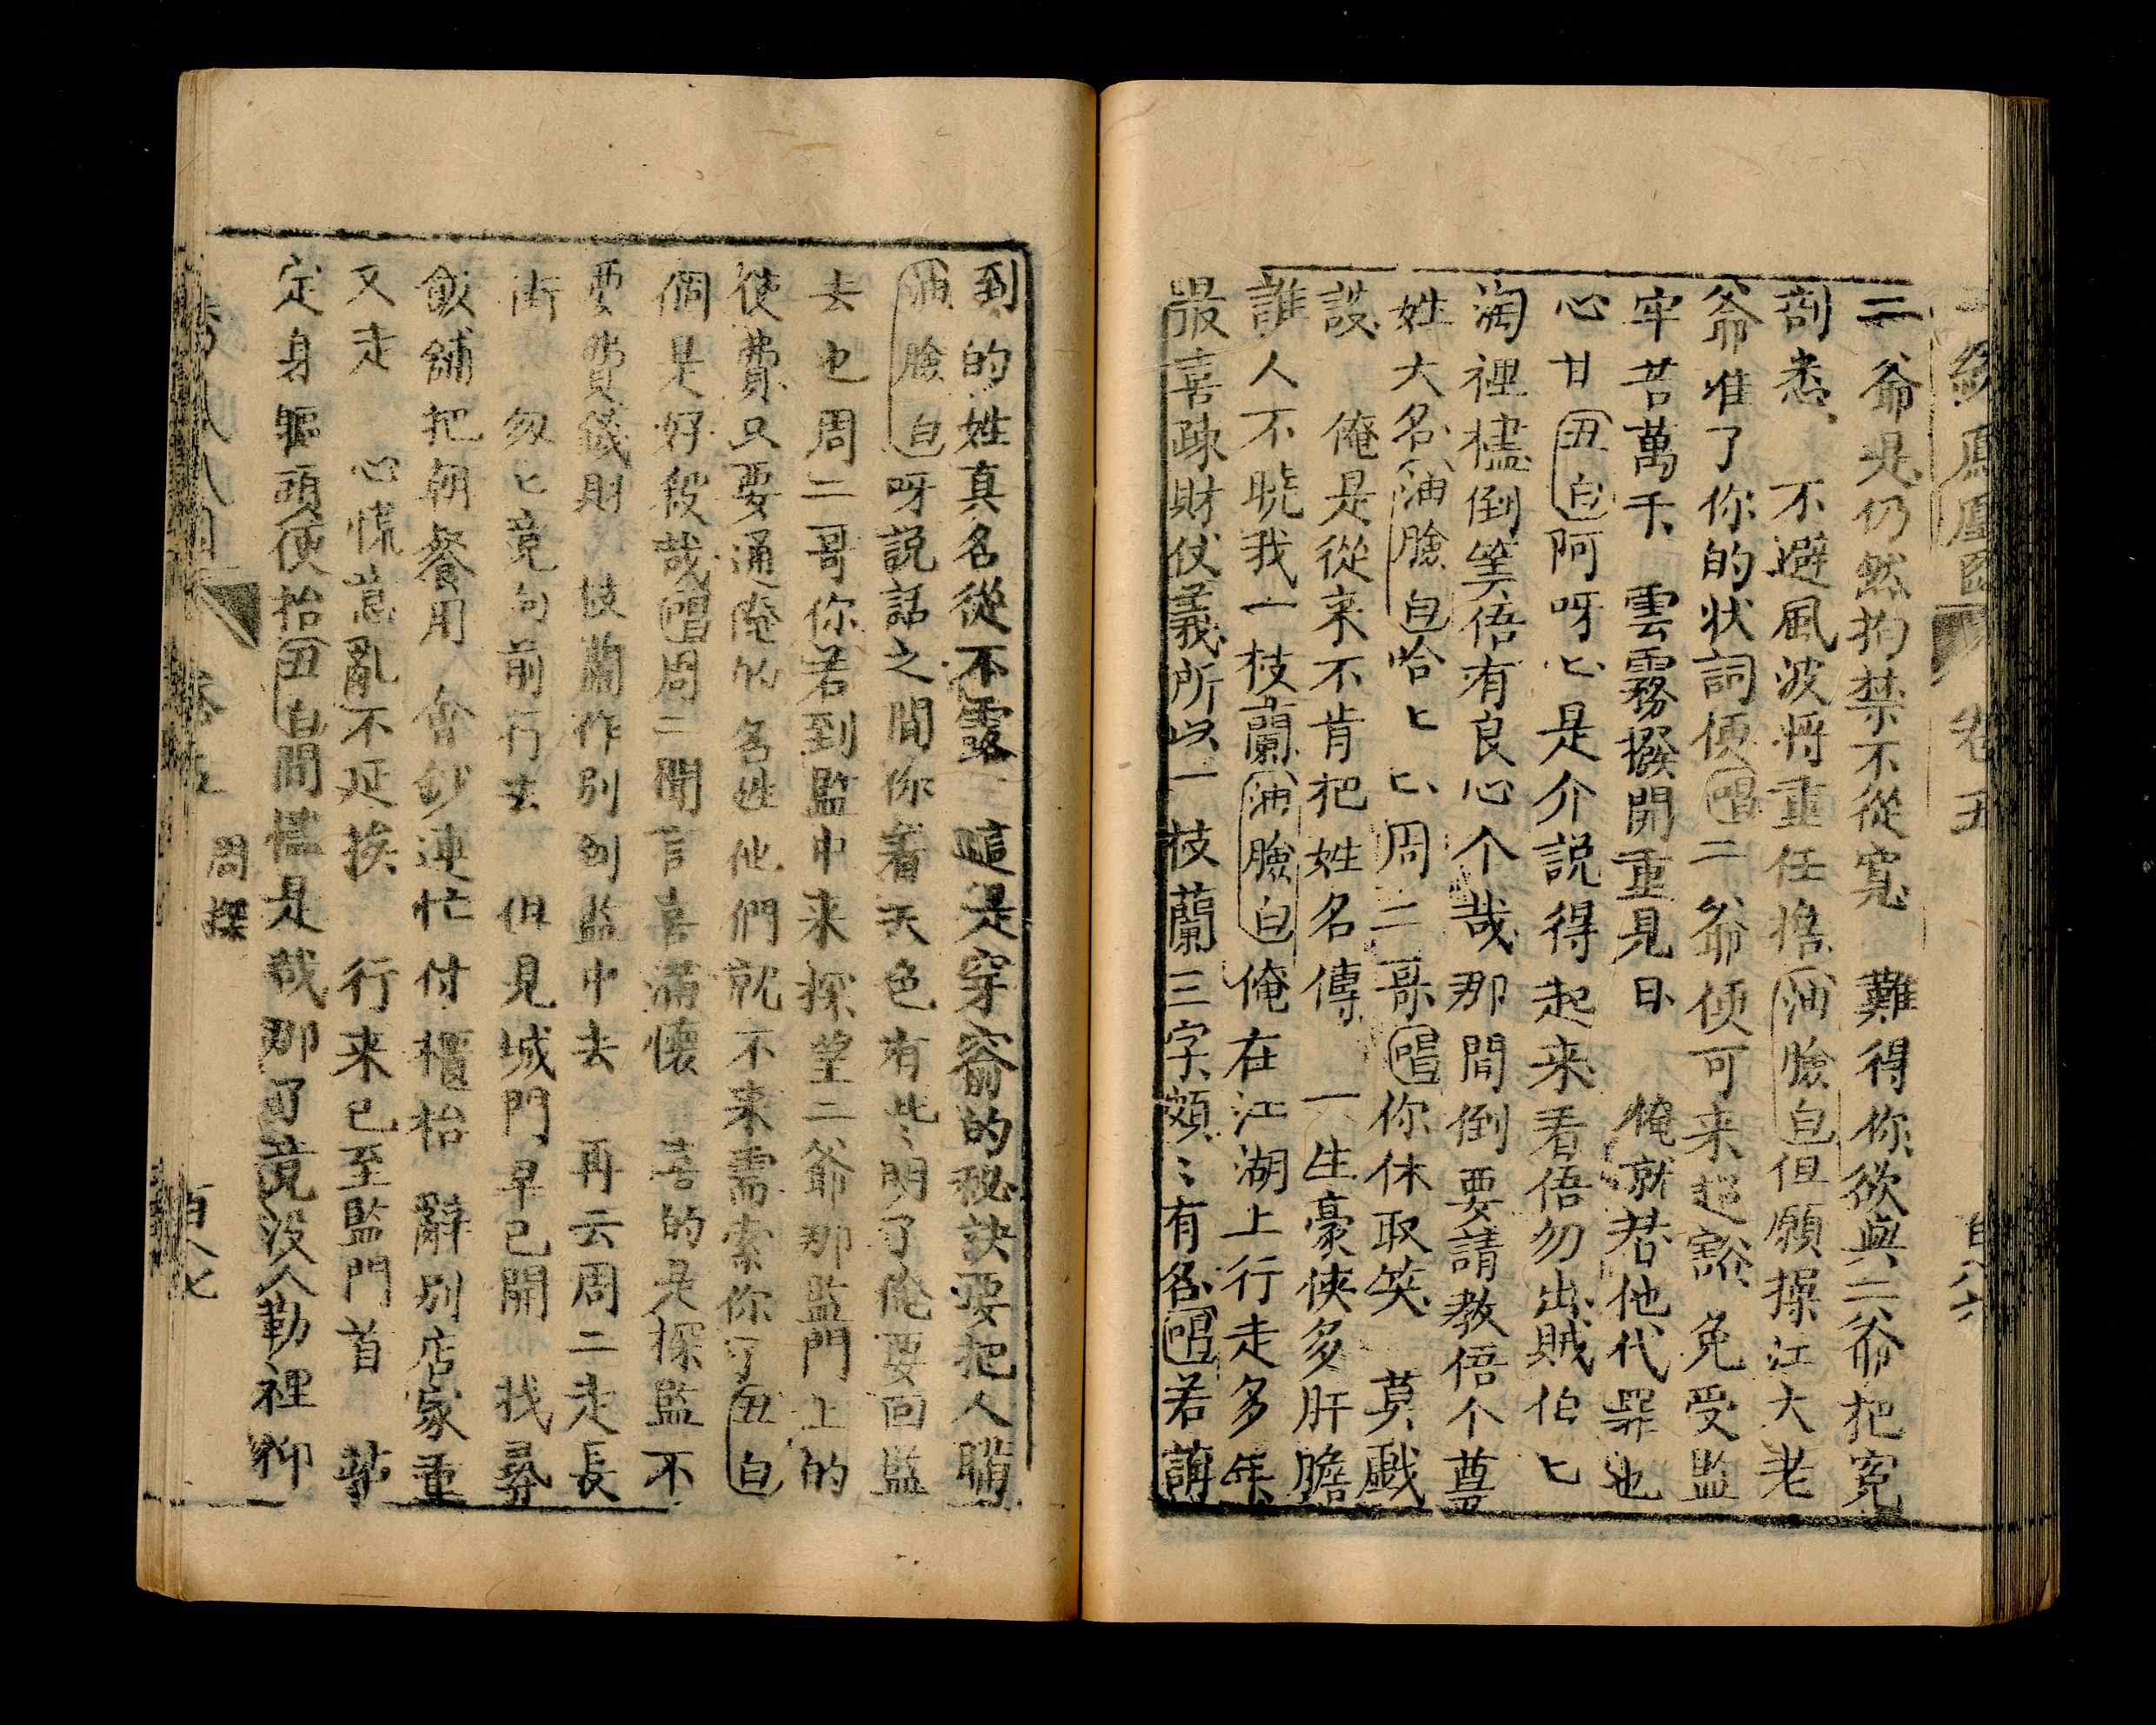 鳳凰圖 卷五 百八六
二爺是仍然拘禁不從寬 難得你欲與二爺把冤
剖悉 不避風波將重任擔 油臉白 但願操江大老
爺准了你的状詞便 唱 二爺便可来超豁 免受監
牢苦萬千 雲霧撥開重見日 俺就替他代罪也
心甘 丑白 阿呀匕是介説得起来看俉勿出賊伯匕
淘裡𣡌倒筭俉有良心个哉那間倒要請教俉个尊
姓大名 油臉白 哈匕匕周二哥 唱 你休取笑 莫戲
談 俺是從来不肯把姓名傳 一生豪俠多肝膽
誰人不曉我一枝蘭 油臉白 俺在江湖上行走多年
最喜疎財仗義所以一枝蘭三字頗〻有名 唱 若講
到的姓真名從不露 這是穿窬的秘訣要把人瞞
油臉白 呀説話之間你看天色有些明了俺要回監
去也周二哥你若到監中来探望二爺那監門上的
使費只要通俺的名姓他們就不来需索你了 丑白
個是好殺哉 唱 周二聞言喜滿懷 喜的是探監不
要費錢財 枝蘭作別到監中去 再云周二走長
街 匆匕竟向前行去 但見城門早已開 找尋
飯舖把朝餐用 會鈔連忙付櫃抬 辭別店家重
又走 心慌意亂不延挨 行来已至監門首 站
定身軀頭便抬 丑白 間搭是哉那了竟没人勒裡
卷五 周探 百八七